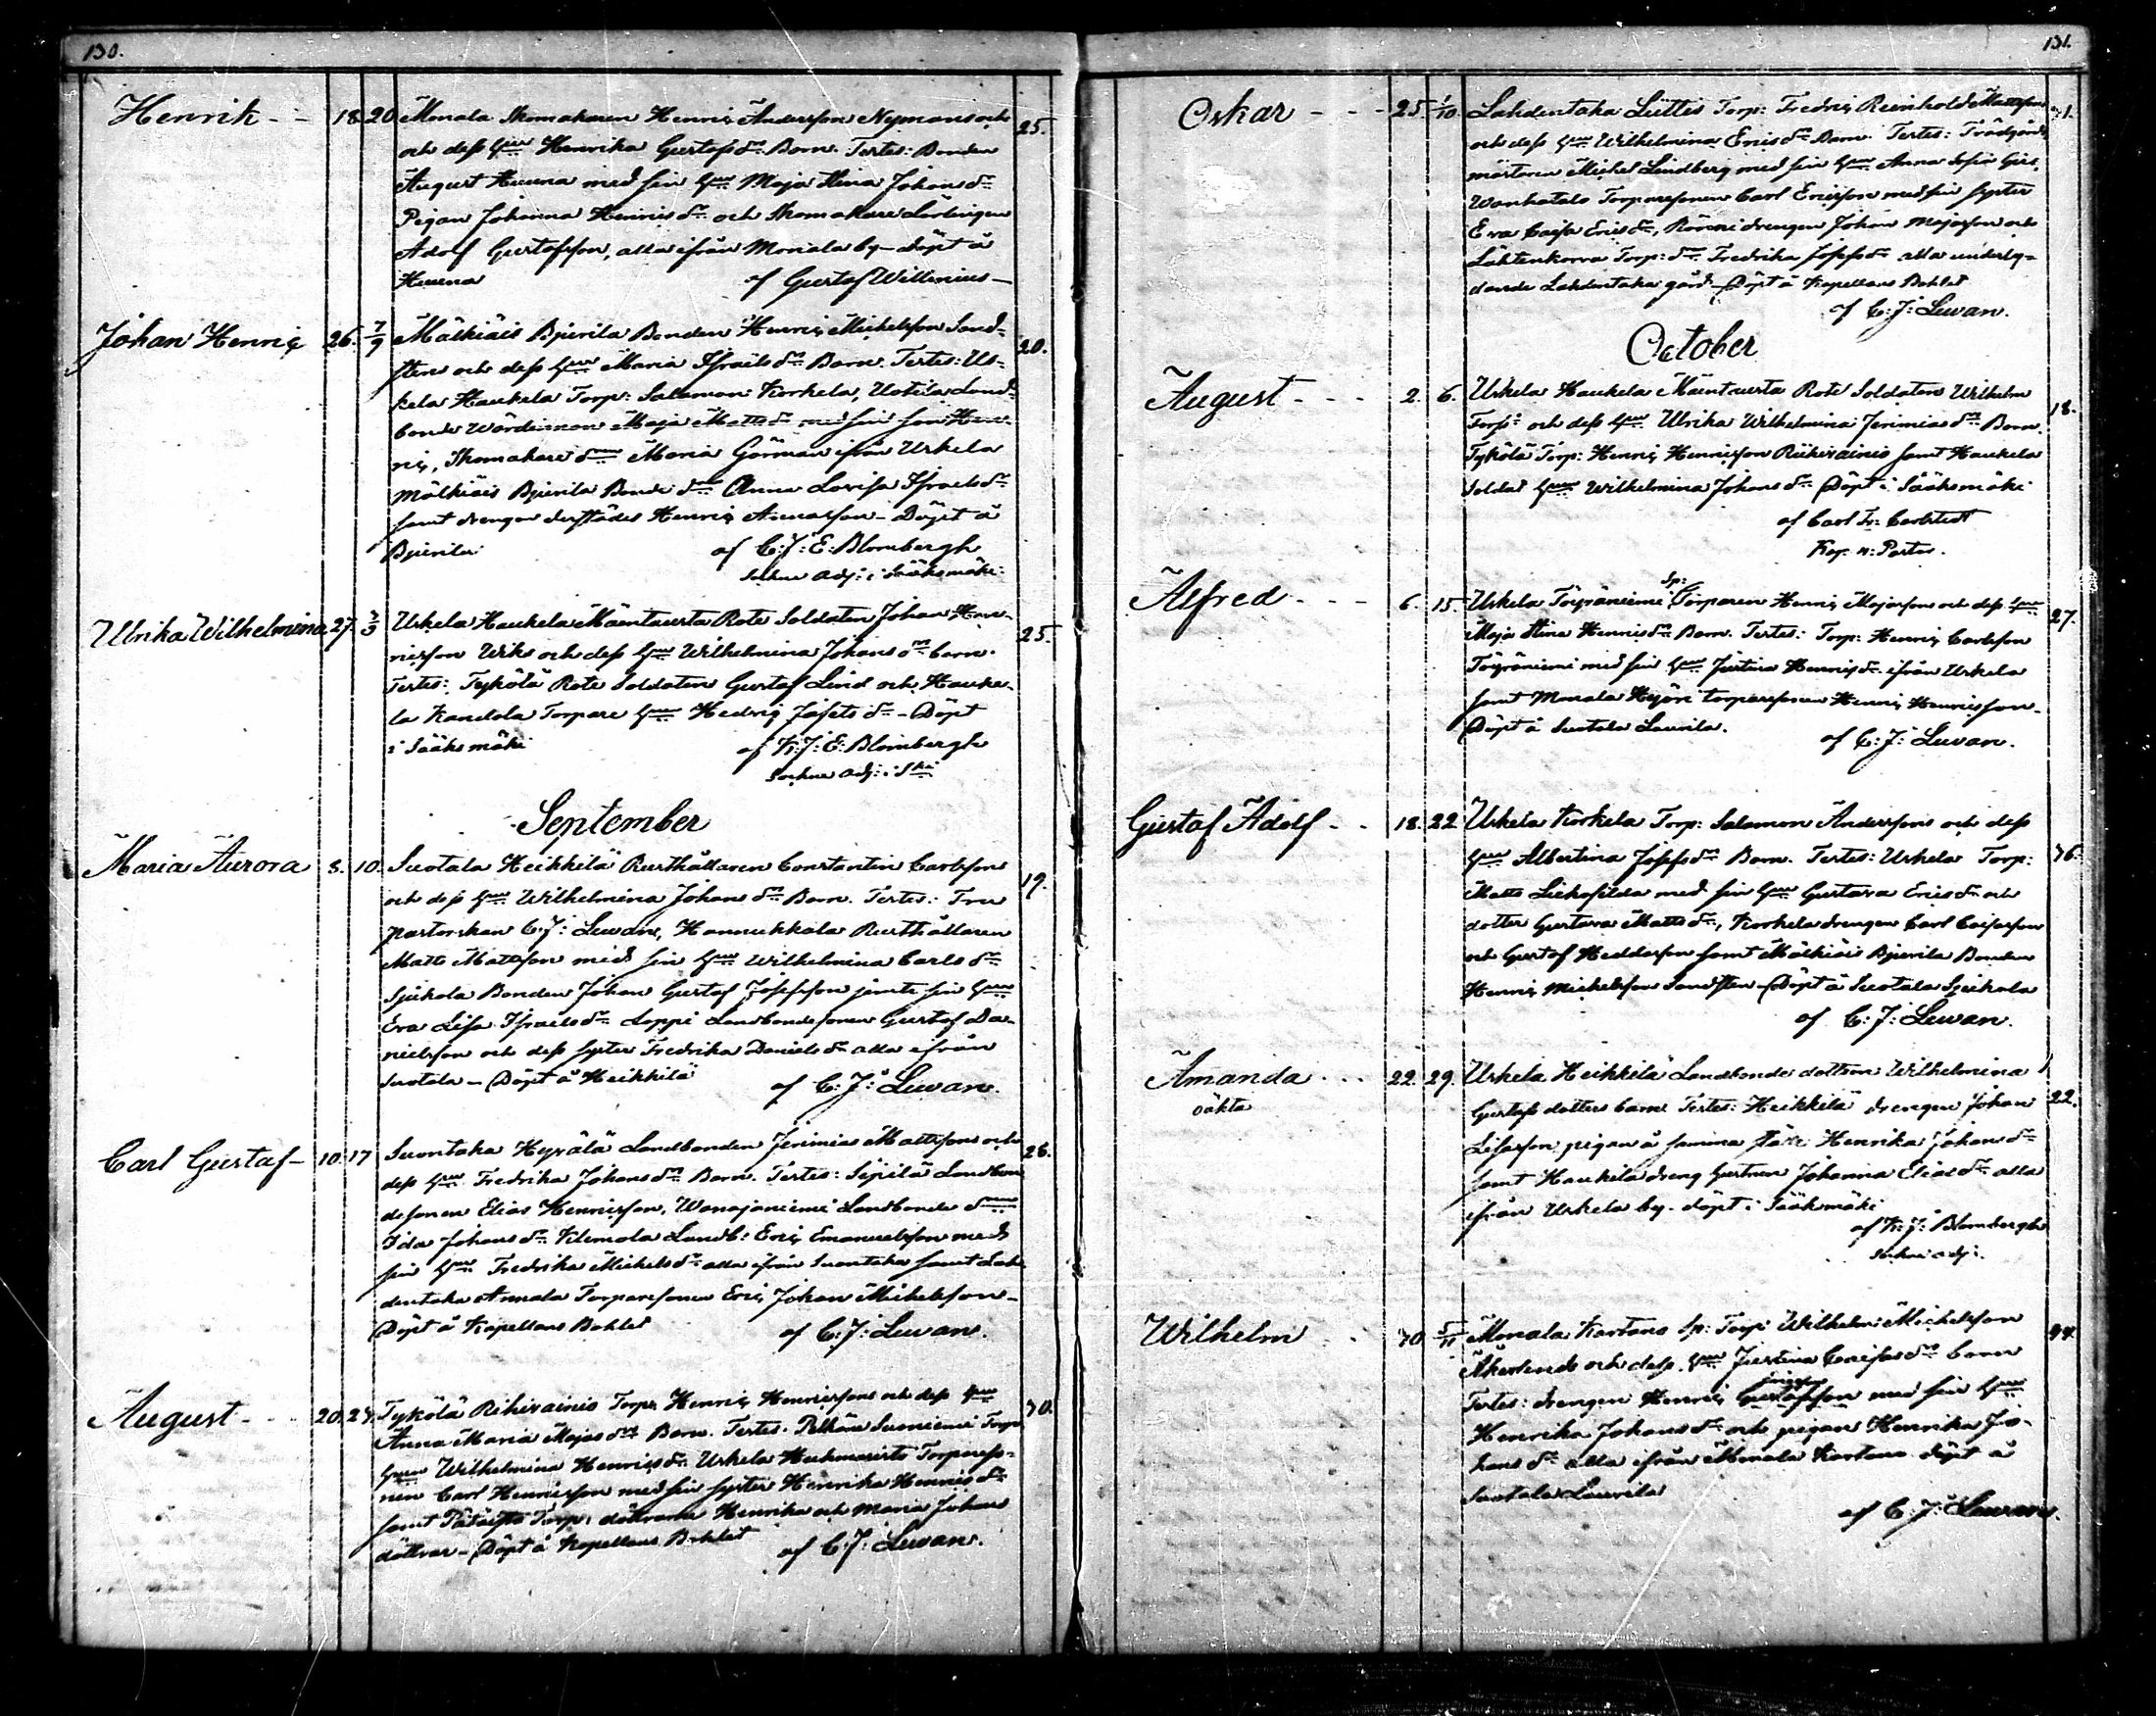 130.
Henrik - - 18 20 Monala Skomakaren Henric Andersson Nymans och 25.
och dess Hu Henrika Gustafsdr Barn. Testes: Bonden
August Huuna med sin Hu Maja Stina Johansdr
Pigan Johanna Henricsdr och Skomakare Lärlingen
Adolf Gustafsson, alla ifrån Monala by - Döpt å
Huuna af Gustaf Willenius -
Johan Henric 26. 7/9 Mälkiäis Bjerila Bonden Henric Michelsson Sand- 20.
stens och dess Hu Maria Israelsdr Barn. Testes: Us-
kela Haukela Torp: Salomon Korkela, Uotila Land-
bonde Wärdinnan Maja Mattsdr med sin son Hen-
ric, Skomakare dr Maria Görman ifrån Uskela
Mälkiäis Bjerila Bonde dr Anna Lovisa Israelsdr
samt drengen derstädes Henric Annasson - Döpt å
Bjerila af C: J: E: Blombergh
Sockne adj: i Sääksmäki
Ulrika Wilhelmina 27. 3/9 Uskela Haukela Mäntausta Rote Soldaten Johan Hen- 25.
ricsson Wiks och dess Hu Wilhelmina Johansdr barn.
Testes: Tykölä Rote Soldaten Gustaf Lind och Hauke-
la Kandola Torpare Hu Hedvig Jafetsdr - Döpt
i Sääksmäki af K: J: E: Blombergh
Sockne adj: i Ski
September
Maria Aurora 8. 10. Suotala Heikkilä Rusthållaren Constantin Carlsson 19.
och dess Hu Wilhelmina Johansdr Barn. Testes: Fru
pastorskan C: J: Lewan, Hannukkala Rusthållaren
Matts Mattsson med sin Hu Wilhelmina Carlsdr
Sjukola Bonden Johan Gustaf Josefsson jemte sin Hu
Eva Lisa Israelsdr Loppi Landbondesonen Gustaf Da-
nielsson och dess syster Fredrika Danielsdr alla ifrån
Suotala - Döpt å Heikkilä af C: J: Lewan.
Carl Gustaf - 10. 17 Suontaka Hyrälä Landbonden Jeremias Mattssons och 26.
dess Hu Fredrika Johansdr Barn. Testes: Sipilä Landbon-
desonen Elias Henricsson, Wanajaniemi Landbonde dr
Ida Johansdr Klemola Landb: Eric Emanuelsson med
sin Hu Fredrika Michelsdr alla ifrån Suontaka samt Lah-
dentaka Annala Torparesonen Eric Johan Michelsson -
Döpt å Kapellans Bohlet af C: J: Lewan.
August - - - 20. 27. Tykölä Rihivainio Torp: Henric Henricssons och dess Hu 30.
Anna Maria Majasdr Barn. Testes: Pelkäne Suoniemi Torp:
Hu Wilhelmina Henricsdr Uskela Huhmaristo Torpareso-
nen Carl Henricsson med sin syster Henrika Henricsdr
samt Torp: döttrarne Henrika och Maria Johans
döttrar - Döpt å Kapellans Bohlet af C: J: Lewan.
131.
Oskar - - - 25. 1/10 Lahdentaka Lüttis Torp: Fredric Reinhold Mattssons 31.
och dess Hu Wilhelmina Ericsdr Barn. Testes: Trädgårds
mästaren Michel Lindberg med sin Hu Anna Sofia
Wanhatalo Torparesonen Carl Ericsson med sin syster
Eva Caisa Ericsdr, Rönni drengen Johan Majasson och
Lähtenkorva Torp: dr Fredrika Josefsdr alla underly-
dande Lahdentaka gård - Döpt å Kapellans Bohlet
af C: J: Lewan.
October
August - - - 2. 6. Uskela Haukela Mäntausta Rote Soldaten Wilhelm 18.
Torps och dess Hu Ulrika Wilhelmina Jerimiasdr Barn.
Tykölä Torp: Henric Henricsson Riihivainio samt Haukela
Soldat Hu Wilhelmina Johansdr Döpt i Sääksmäki
af Carl Fr: Carlstedt
Kap. n: Pastor.
Alfred - - - 6. 15. Uskela Töyräniemi Sp: Torparen Henric Majassons och dess Hu 27.
Maja Stina Henricsdr Barn. Testes: Torp: Henric Carlsson
Töyräniemi med sin Hu Justina Henricsdr ifrån Uskela
samt Monala Hyöri torparesonen Henric Henricsson.
Döpt å Suotala Laurila. af C: J: Lewan.
Gustaf Adolf - - 18. 22 Uskela Korkela Torp: Salomon Anderssons och dess
Hu Albertina Josefsdr Barn. Testes: Uskela Torp: 36.
Matts Liekosilda med sin Hu Gustava Ericsdr och
dotter Gustava Mattsdr, Korkela drengen Carl Caisasson
och Gustaf Heddasson samt Mälkiäis Bjerila Bonden
Henric Michelsson Sandsten - Döpt å Suotala Sjukola
af C: J: Lewan.
Amanda - - - 22. 29. Uskela Heikkilä Landbonde dottren Wilhelmina
oäkta Gustafs dotters barn Testes: Heikkilä drengen Johan 22.
Lisasson pigan å samma ställe Henrika Johansdr
samt Haukela dreng hustrun Johanna Eliaedr alla
ifrån Uskela by. döpt i Sääksmäki
af K: J: Blombergh
Sockne adj:
Wilhelm - - 30 5/11 Monala Kortens Sp: Torp: Wilhelm Michelsson 44.
Åkerlunds och dess Hu Justina Caisasdr barn
Testes: drengen Henric Gustafsson med sin Hu
Henrika Johansdr och pigan Henrika Jo-
hansdr alla ifrån Monala Kortens döpt å
Suotala Laurila
af C: J: Lewan.